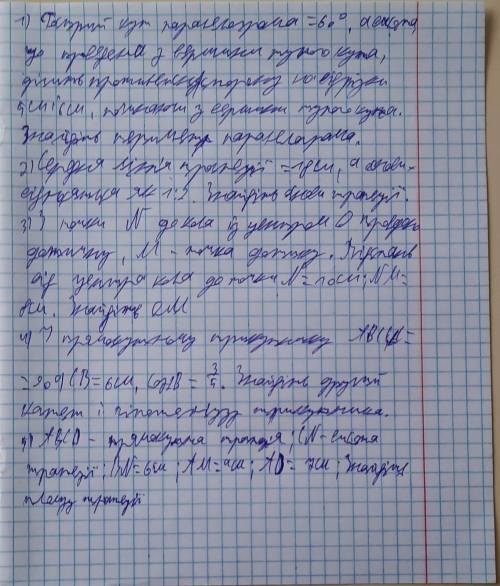 1) Гострий кут паралелограма = 60°, а висота,
що проведена з вершини тупого кута,
ділить протилежну сторону на відрізки
і 6см, починаючи з вершини кута.
Знайдіть периметр паралелограма.
2) Середня лінія трапеції = см, а основи
відносяться як 1:2. Знайдіть основи трапеції.
3) З точки N до кола із центром O проведено
дотичну, M - точка дотику. Відстань
від центра кола до точки N = 10см; NM =
8см. Знайдіть OM
4) У прямокутному трикутнику ABC
= 90° CB = 6см, cosB = 3/5. Знайдіть другий
катет і гіпотенузу трикутника.
5) ABCD - прямокутна трапеція; CN = висота
трапеції; = 6см; AM = 4см; AD = 7см; Знайдіть
площу трапеції